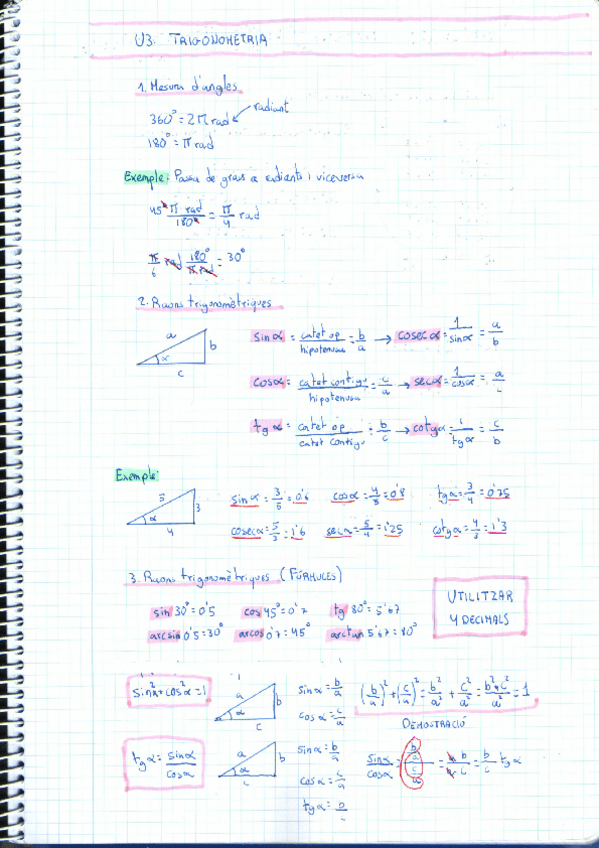 U3. TRIGONOMETRIA
1. Mesura d'angles
360° = 2π rad radiant
180° = π rad
Exemple: Passa de graus a radiants i viceversa
45° π rad / 180° = π/4 rad
π/6 rad 180° / π rad = 30°
2. Raons trigonomètriques
a b c α
sin α = catet op / hipotenusa = b/a → cosec α = 1/sin α = a/b
cos α = catet contigu / hipotenusa = c/a → sec α = 1/cos α = a/
tg α = catet op / catet contigu = b/c → cotg α = 1/tg α = c/b
Exemple:
5 3 4 α
sin α = 3/5 = 0'6 cos α = 4/5 = 0'8 tg α = 3/4 = 0'75
cosec α = 5/3 = 1'6 sec α = 5/4 = 1'25 cotg α = 4/3 = 1'3
3. Raons trigonomètriques (FÓRMULES)
sin 30° = 0'5 cos 45° = 0'7 tg 80° = 5'67
arcsin 0'5 = 30° arcos 0'7 = 45° arctan 5'67 = 80°
UTILITZAR
4 DECIMALS
sin²α + cos²α = 1
a b c α
sin α = b/a
cos α = c/a
(b/a)² + (c/a)² = b²/a² + c²/a² = b²+c²/a² = 1
DEMOSTRACIÓ
tg α = sin α / cos α
a b c α
sin α = b/a
cos α = c/a
tg α = b/
sin α / cos α = b/a / c/a = a b / a c = b/c tg α